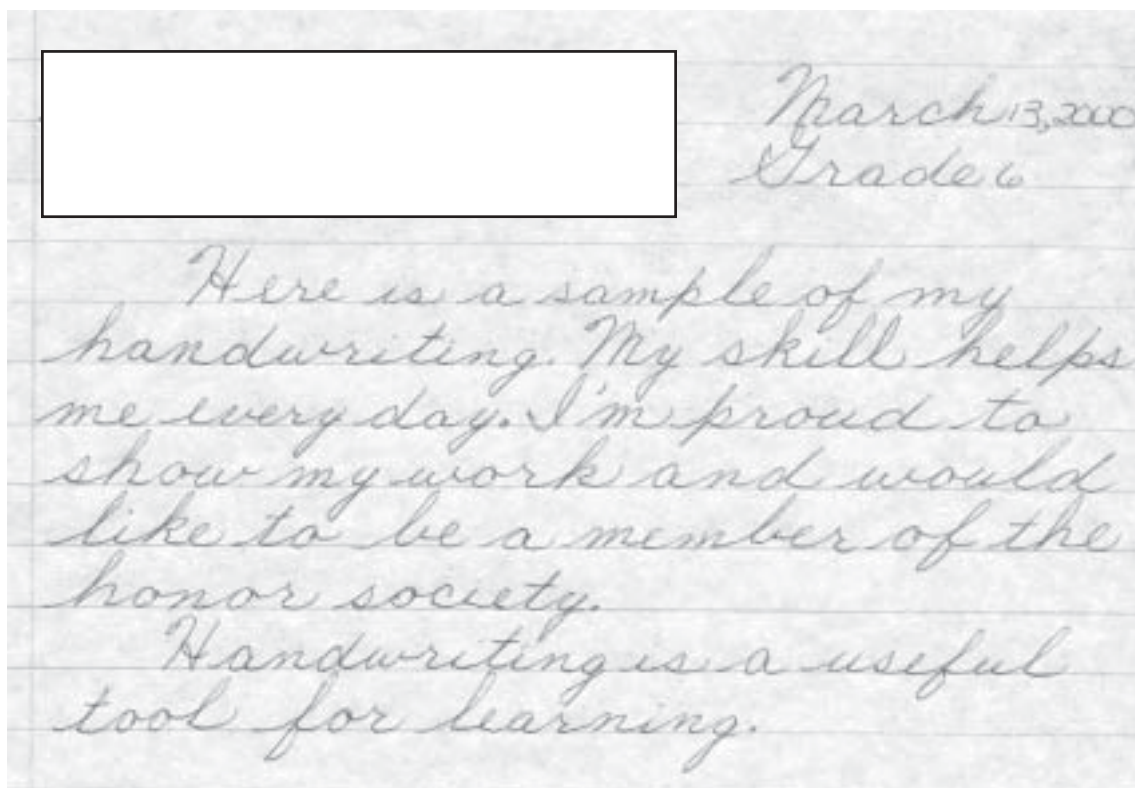 March 13, 2000
Grade 6
Here is a sample of my
handwriting. My skill helps
me every day. I'm proud to
show my work and would
like to be a member of the
honor society.
Handwriting is a useful
tool for learning.